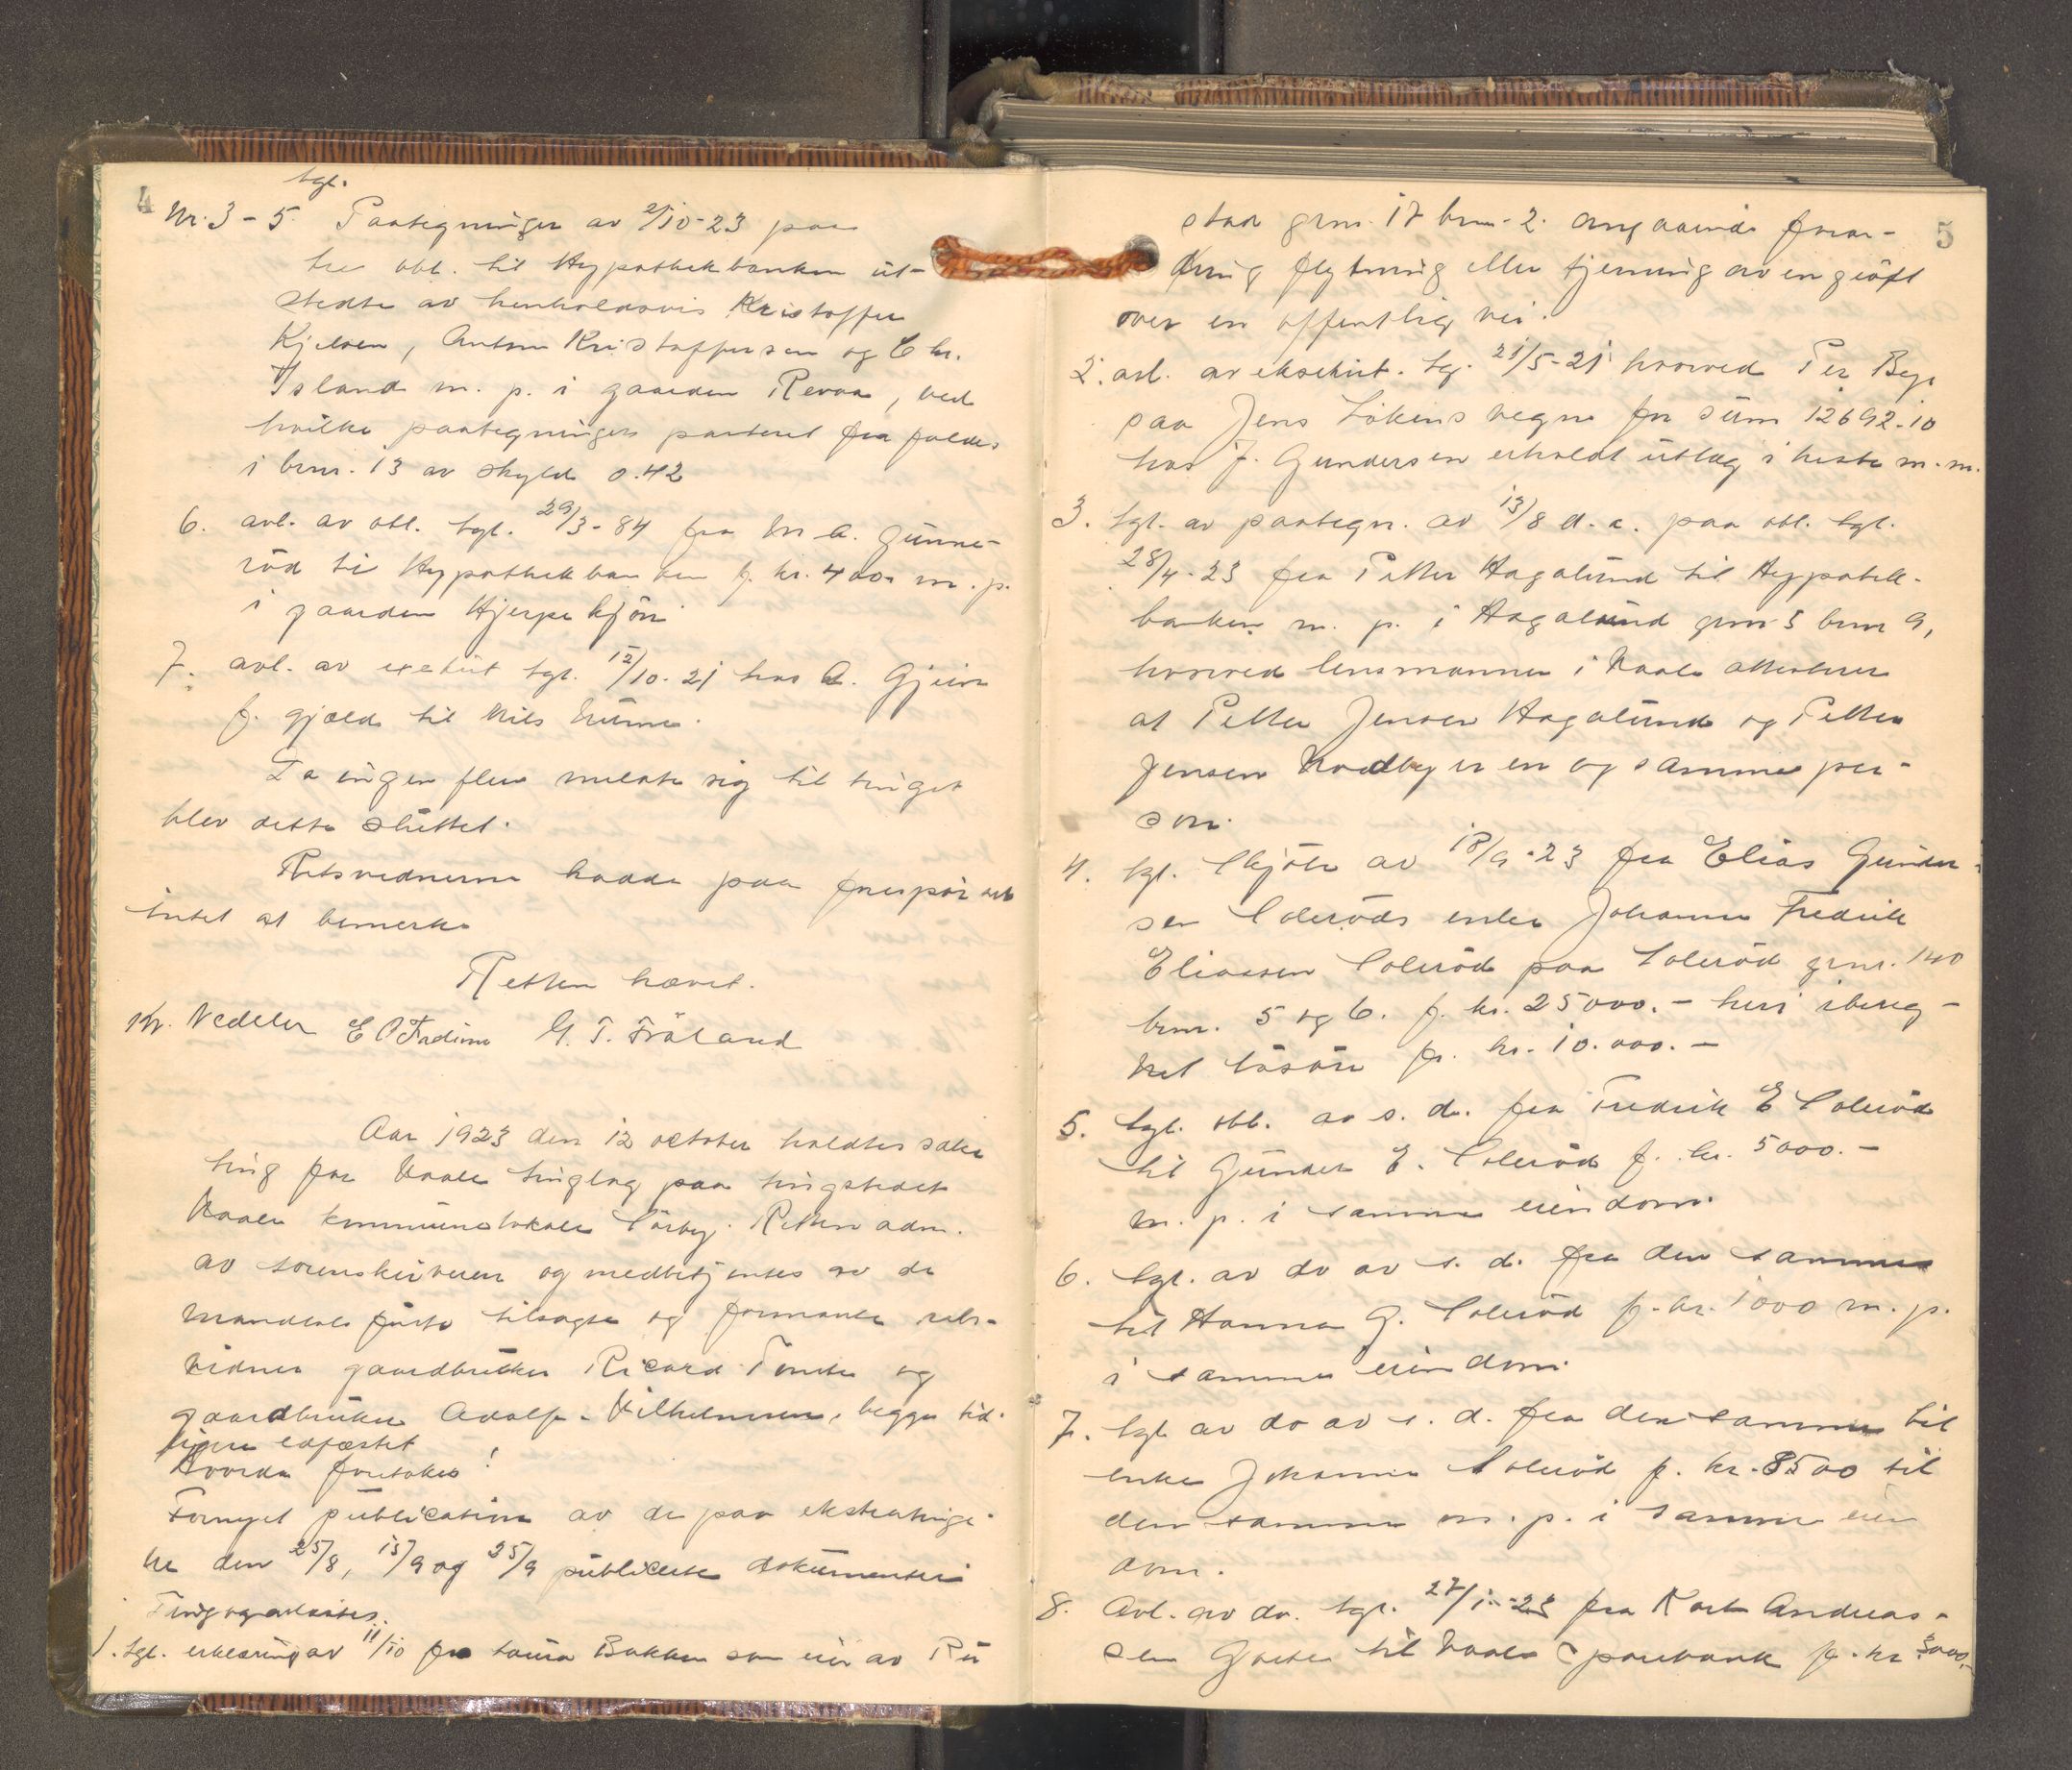 4
tgl.
Nr. 3 - 5 Paategninger av 2/10-23 paa
tre obl. til Hypothekbanken ut-
stedte av henholdsvis Kristoffer
Kjelsen, Anton Kristoffersen og Chr.
Island m. p. i gaarden Revaa, ved
hvilke paategninger pantet fra faldes
i brnr. 13 av skyld 0.42
6. avl. av obl. tgl. 29/3-84 fra M A. Gunne-
röd til Hypothekbanken f. kr. 4000 m. p.
i gaarden Hjerpekjön
7. avl. av exekut tgl. 12/10-21 hos A. Gjein
f. gjæld til Nils
Da ingen flere meldte sig til tinget
blev dette sluttet.
Retsvidnerne hadde paa forespörsel
intet at bemerke
Retten hævet.
Kr. Nedeler E O G. T. Fröland
Aar 1923 den 12 october holdtes saker
ting for Vaale tinglag paa tingstedet
Vaale kommunelokale Sörby. Retten adm.
av sorenskriveren og medbetjentes av de
mandtals förte tilsagte og formante rets-
vidner gaardbruker Ricard og
gaardbruker Adolf Vilhelmsen, begge tid-
ligere edfæstet
Hvorda foretokes:
Fornyet publication av de paa ekstrating-
ne den 25/8, 15/9 og 25/9 publicerte dokumenter
Ting og avlæstes.
1. tgl. erklæring av 11/10 fra Bakken som eier av Ru
5
stad grnr. 17 brnr. 2. angaaende foran-
dring flytning eller fjerning av en gröft
over en offentlig vei.
2. avl. av eksekut. tgl. 21/5-21 hvorved Per Berg
paa Jens Lökens vegne for sum 12692.10
hos J. Gundersen erholdt utlæg i heste m. m.
3. tgl. av paategn. av 13/8 d. a. paa obl. tgl.
28/4-23 fra Petter Hagalund til Hypothek-
banken m. p. i Hagalund grnr 5 brnr 9,
hvorved lensmannen i Vaale attesterer
at Petter Jensen Hagalund og Petter
Jensen Nordby er en og samme per-
son.
4. tgl. Skjöte av 18/9-23 fra Elias Gunder-
sen Soleröds enke Johanne Fredrik
Eliassen Soleröd paa Soleröd grnr. 140
brnr. 5 og 6. f. kr. 25000.- heri ibereg-
net lösöre fr. kr. 10.000.-
5. tgl. obl. av s. d. fra Fredrik E Soleröd
til Gunder E. Soleröd f. kr. 5000.-
m. p. i samme eiendom.
6. tgl. av do av s. d. fra den samme
til Hanna G. Soleröd f. kr. 1000 m. p.
i samme eiendom.
7. tgl av do av s. d. fra den samme til
enke Johanne Soleröd f. kr. 8500 til
den samme m. p. i samme eien
dom.
8. Avl. av do. tgl. 27/1-23 fra Karl Andreas-
sen til Vaale Sparebank f. kr 3000,-